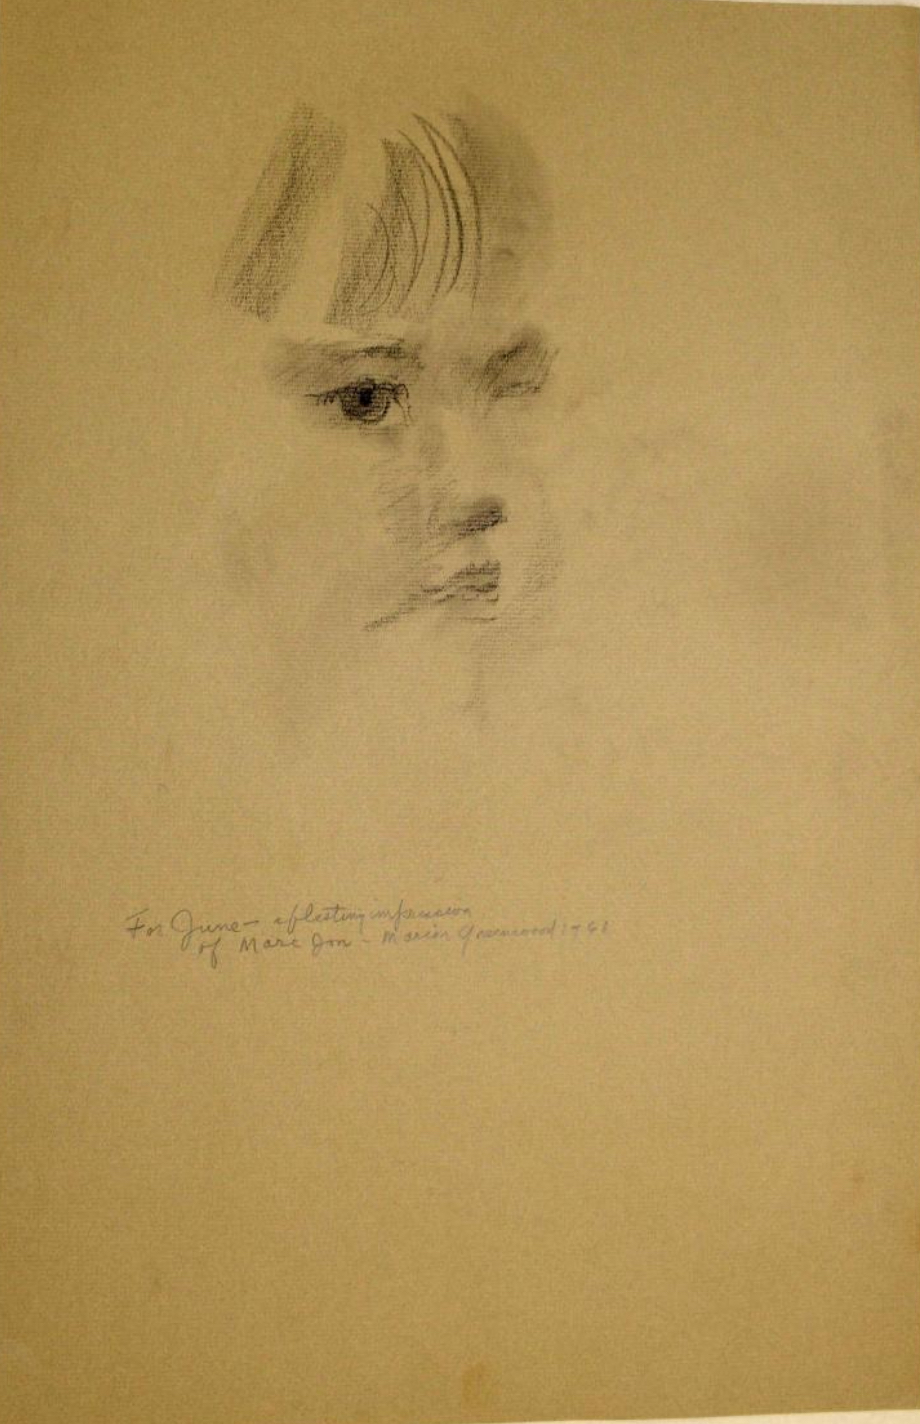 For June - a fleeting impression
of Marc Jon - Marion Greenwood